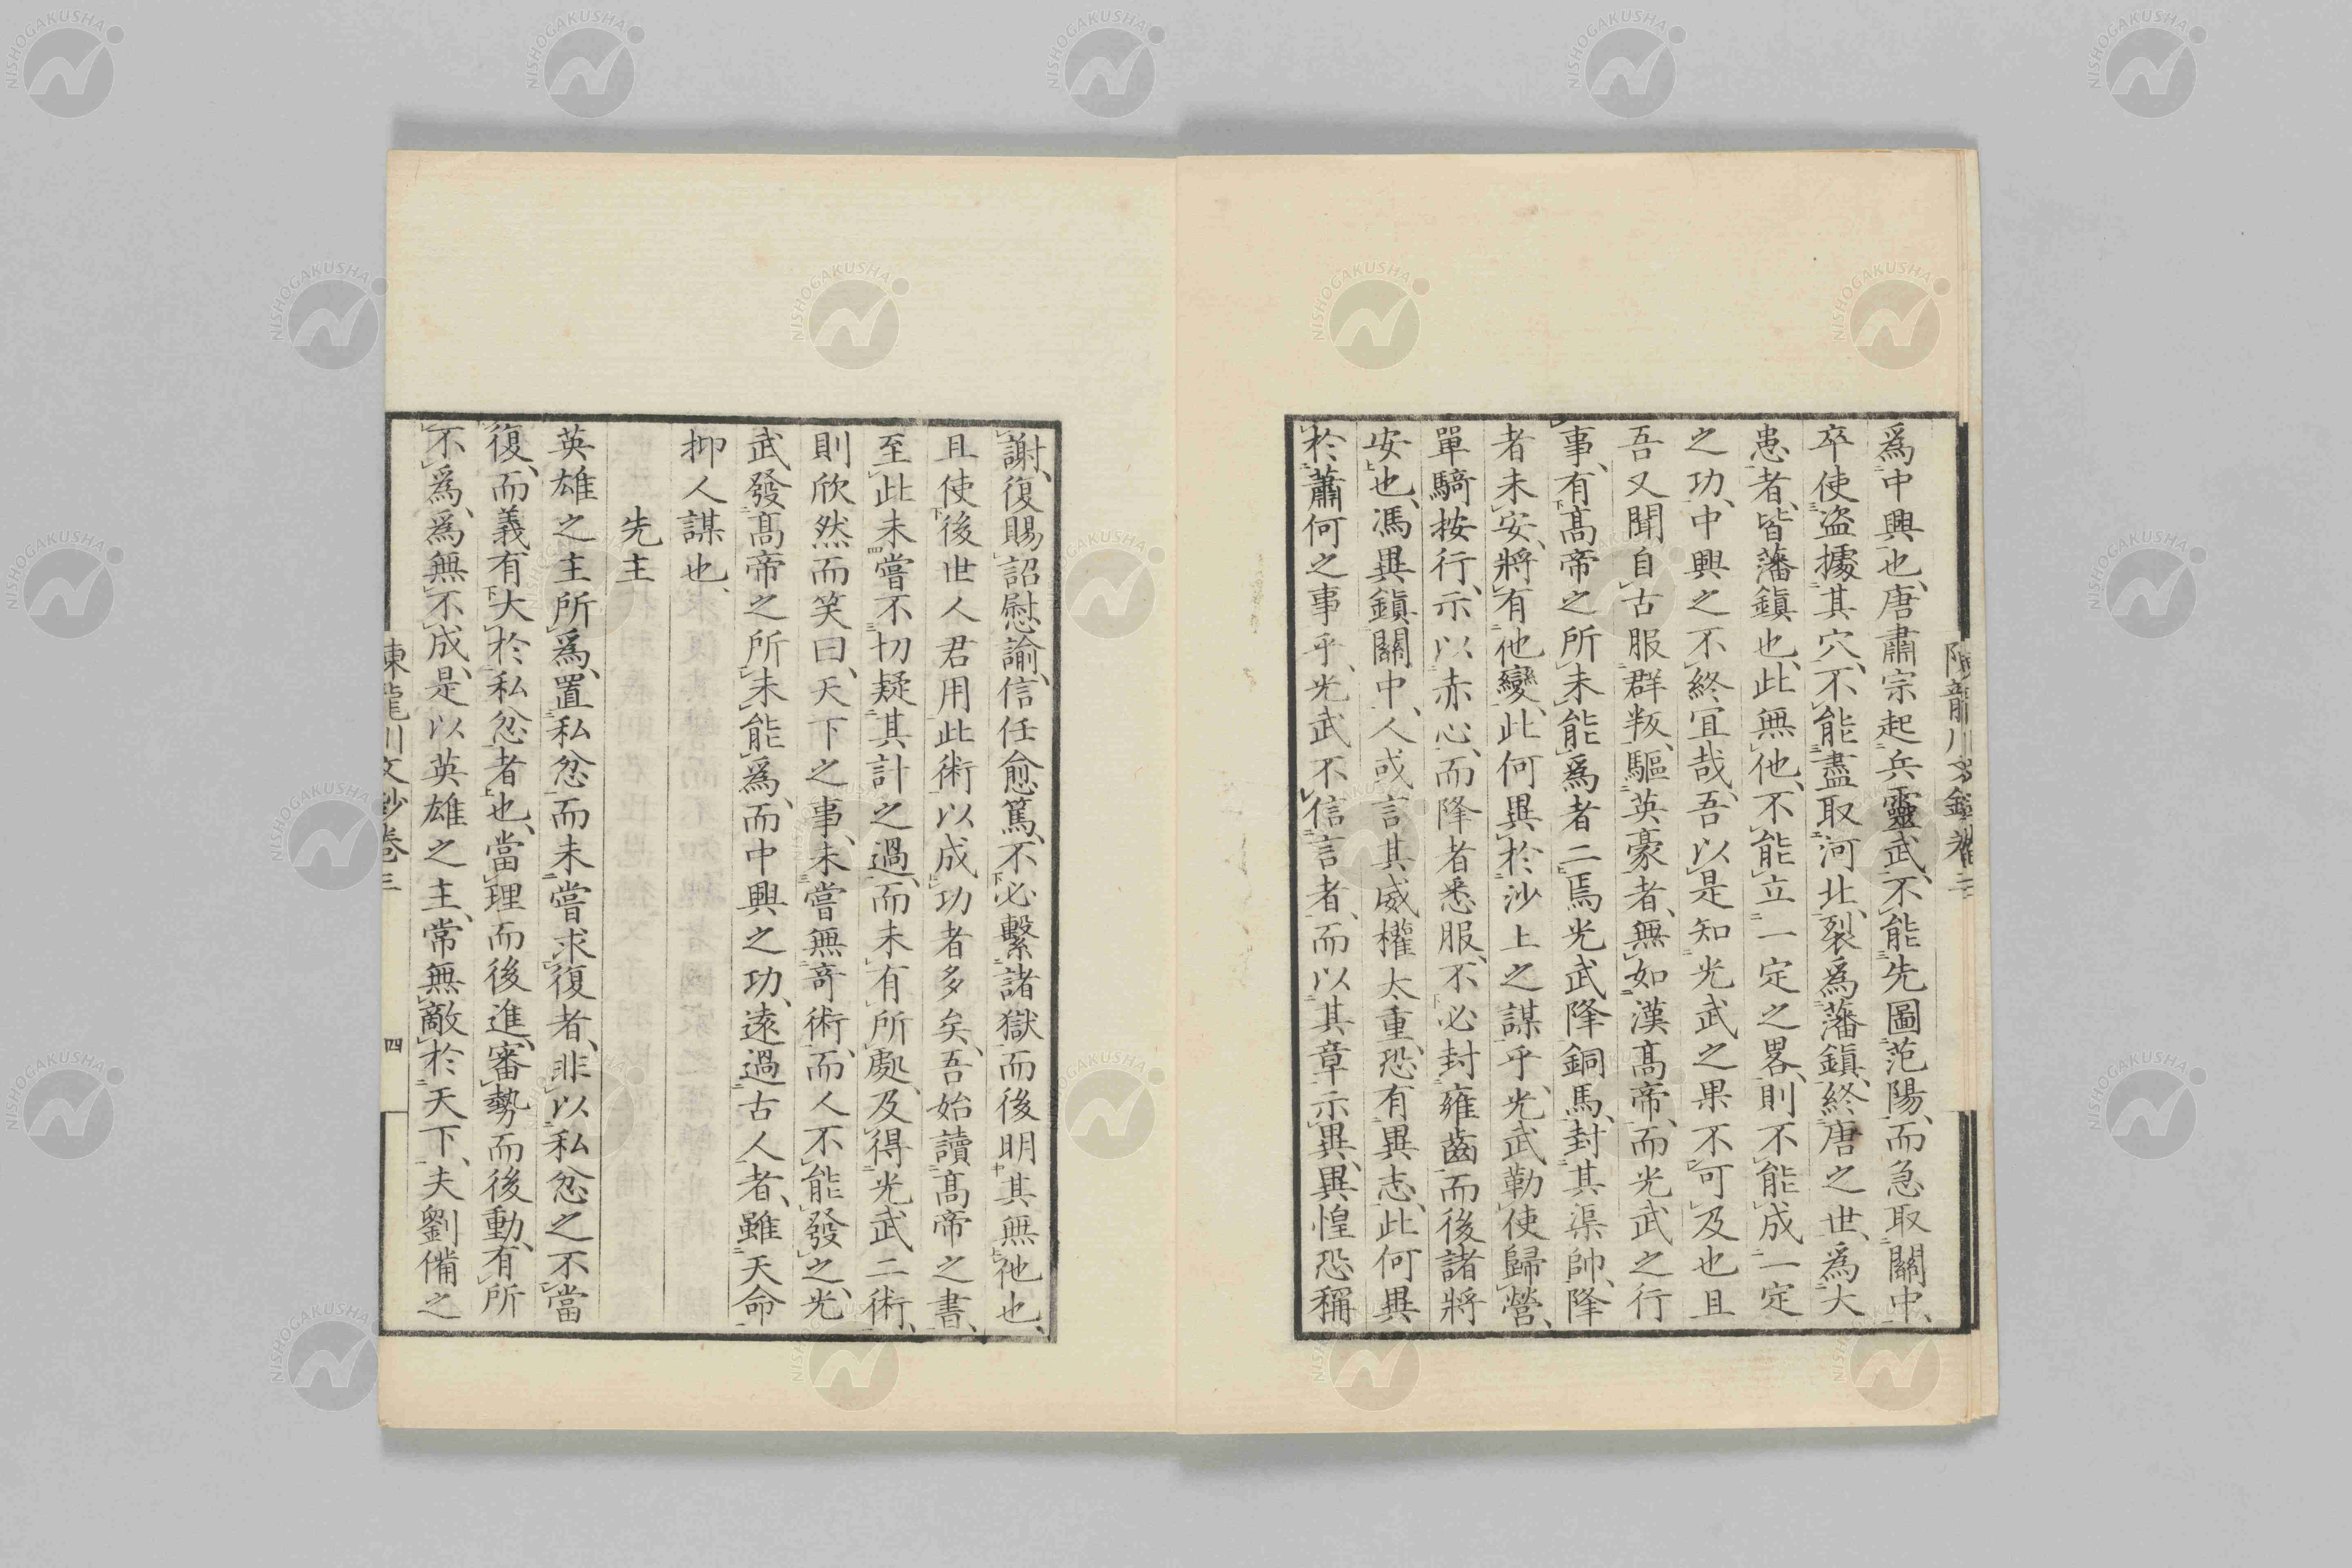 爲中興也、唐肅宗起兵靈武、不能先圖范陽、而急取關中、
卒使盗據其穴、不能盡取河北、裂爲藩鎭、終唐之世、爲大
患者、皆藩鎭也、此無他、不能立一定之畧、則不能成一定
之功、中興之不終宜哉、吾以是知光武之果不可及也且
吾又聞自古服群叛、驅英豪者、無如漢高帝、而光武之行
事、有高帝之所未能爲者二焉光武降銅馬、封其渠帥、降
者未安、將有他變、此何異於沙上之謀乎、光武勒使歸營、
單騎按行、示以赤心、而降者悉服、不必封雍齒而後諸將
安也、馮異鎭關中、人或言其威權太重、恐有異志、此何異
於蕭何之事乎、光武不信言者、而以其章示異、異惶恐稱
謝、復賜詔慰諭、信任愈篤、不必繫諸獄而後明其無他也、
且使後世人君用此術以成功者多矣、吾始讀高帝之書、
至此未嘗不切疑其計之過、而未有所處、及得光武二術、
則欣然而笑曰、天下之事、未嘗無奇術、而人不能發之、光
武發高帝之所未能爲、而中興之功、遠過古人者、雖天命
抑人謀也、
先主
英雄之主所爲、置私忿而未嘗求復者、非以私忿之不當
復、而義有大於私忿者也、當理而後進、審勢而後動、有所
不爲、爲無不成、是以英雄之主、常無敵於天下、夫劉備之
陳龍川文鈔卷三
四
NISHOGAKUSHA